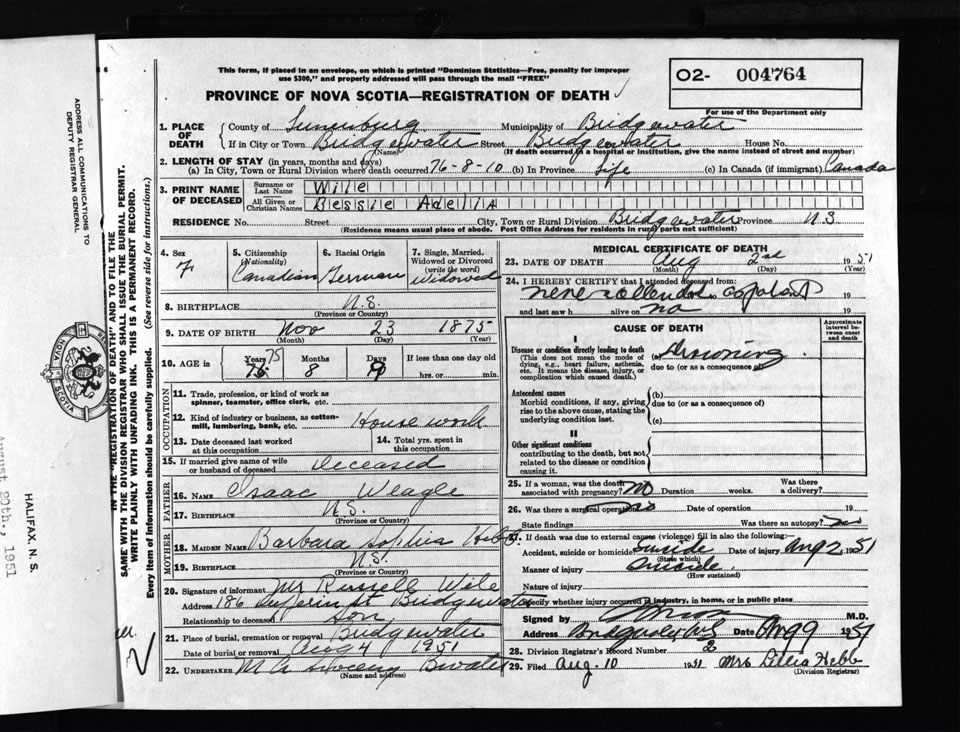 This form, if placed in an envelope, on which is printed "Dominion Statistics—Free, penalty for improper
use $300," and properly addressed will pass through the mail "FREE"
O2- 004764
PROVINCE OF NOVA SCOTIA—REGISTRATION OF DEATH
For use of the Department only
1. PLACE OF DEATH
County of Lunenburg Municipality of Bridgewater
If in City or Town Bridgewater Street Bridgewater House No.
(Name) (If death occurred in a hospital or institution, give the name instead of street and number)
2. LENGTH OF STAY (in years, months and days)
(a) In City, Town or Rural Division where death occurred 76-8-10 (b) In Province Life (c) In Canada (if immigrant) Canada
3. PRINT NAME OF DECEASED
Surname or Last Name Wile
All Given or Christian Names Bessie Adelia
RESIDENCE No. Street City, Town or Rural Division Bridgewater Province N S
(Residence means usual place of abode. Post Office Address for residents in rural parts not sufficient)
4. Sex F
5. Citizenship (Nationality) Canadian
6. Racial Origin German
7. Single, Married, Widowed or Divorced (write the word) Widowed
8. BIRTHPLACE N.S.
(Province or Country)
9. DATE OF BIRTH Nov 23 1875
(Month) (Day) (Year)
10. AGE in Years 75 Months 8 Days 9 If less than one day old
hrs. or min.
OCCUPATION
11. Trade, profession, or kind of work as
spinner, teamster, office clerk, etc.
12. Kind of industry or business, as cotton-
mill, lumbering, bank, etc. House work
13. Date deceased last worked
at this occupation
14. Total yrs. spent in
this occupation
15. If married give name of wife
or husband of deceased Deceased
FATHER
16. NAME Isaac Weagle
17. BIRTHPLACE N.S.
(Province or Country)
MOTHER
18. MAIDEN NAME Barbara Sophia Hebb
19. BIRTHPLACE N.S.
(Province or Country)
20. Signature of informant Mr Russell Wile
Address 186 Dufferin St Bridgewater
Relationship to deceased Son
21. Place of burial, cremation or removal Bridgewater
Date of burial or removal Aug 4 1951
22. UNDERTAKER
(Name and address)
MEDICAL CERTIFICATE OF DEATH
23. DATE OF DEATH Aug 2nd 1951
(Month) (Day) (Year)
24. I HEREBY CERTIFY that I attended deceased from:
19
and last saw h alive on no 19
CAUSE OF DEATH
Approximate interval between onset and death
I
Disease or condition directly leading to death (a) Drowning
(This does not mean the mode of
dying, e.g., heart failure, asthenia,
etc. It means the disease, injury, or
complication which caused death.)
due to (or as a consequence of)
Antecedent causes
Morbid conditions, if any, giving
rise to the above cause, stating the
underlying condition last.
(b)
due to (or as a consequence of)
(c)
II
Other significant conditions
contributing to the death, but not
related to the disease or condition
causing it.
25. If a woman, was the death
associated with pregnancy? no Duration weeks. Was there
a delivery?
26. Was there a surgical operation? no Date of operation 19
State findings Was there an autopsy? no
27. If death was due to external causes (violence) fill in also the following:—
Accident, suicide or homicide Suicide Date of injury Aug 2 1951
(State which)
Manner of injury Suicide.
(How sustained)
Nature of injury
Specify whether injury occurred in industry, in home, or in public place
Signed by M.D.
Address Date Aug 9 1951
28. Division Registrar's Record Number 2
29. Filed Aug. 10 1951 Mrs Lillia Hebb
(Division Registrar)
ADDRESS ALL COMMUNICATIONS TO
DEPUTY REGISTRAR GENERAL
NOVA SCOTIA
HALIFAX, N. S.
August 20th., 1951
IN THE "REGISTRATION OF DEATH" AND TO FILE THE
SAME WITH THE DIVISION REGISTRAR WHO SHALL ISSUE THE BURIAL PERMIT.
WRITE PLAINLY WITH UNFADING INK. THIS IS A PERMANENT RECORD.
Every item of information should be carefully supplied. (See reverse side for instructions.)